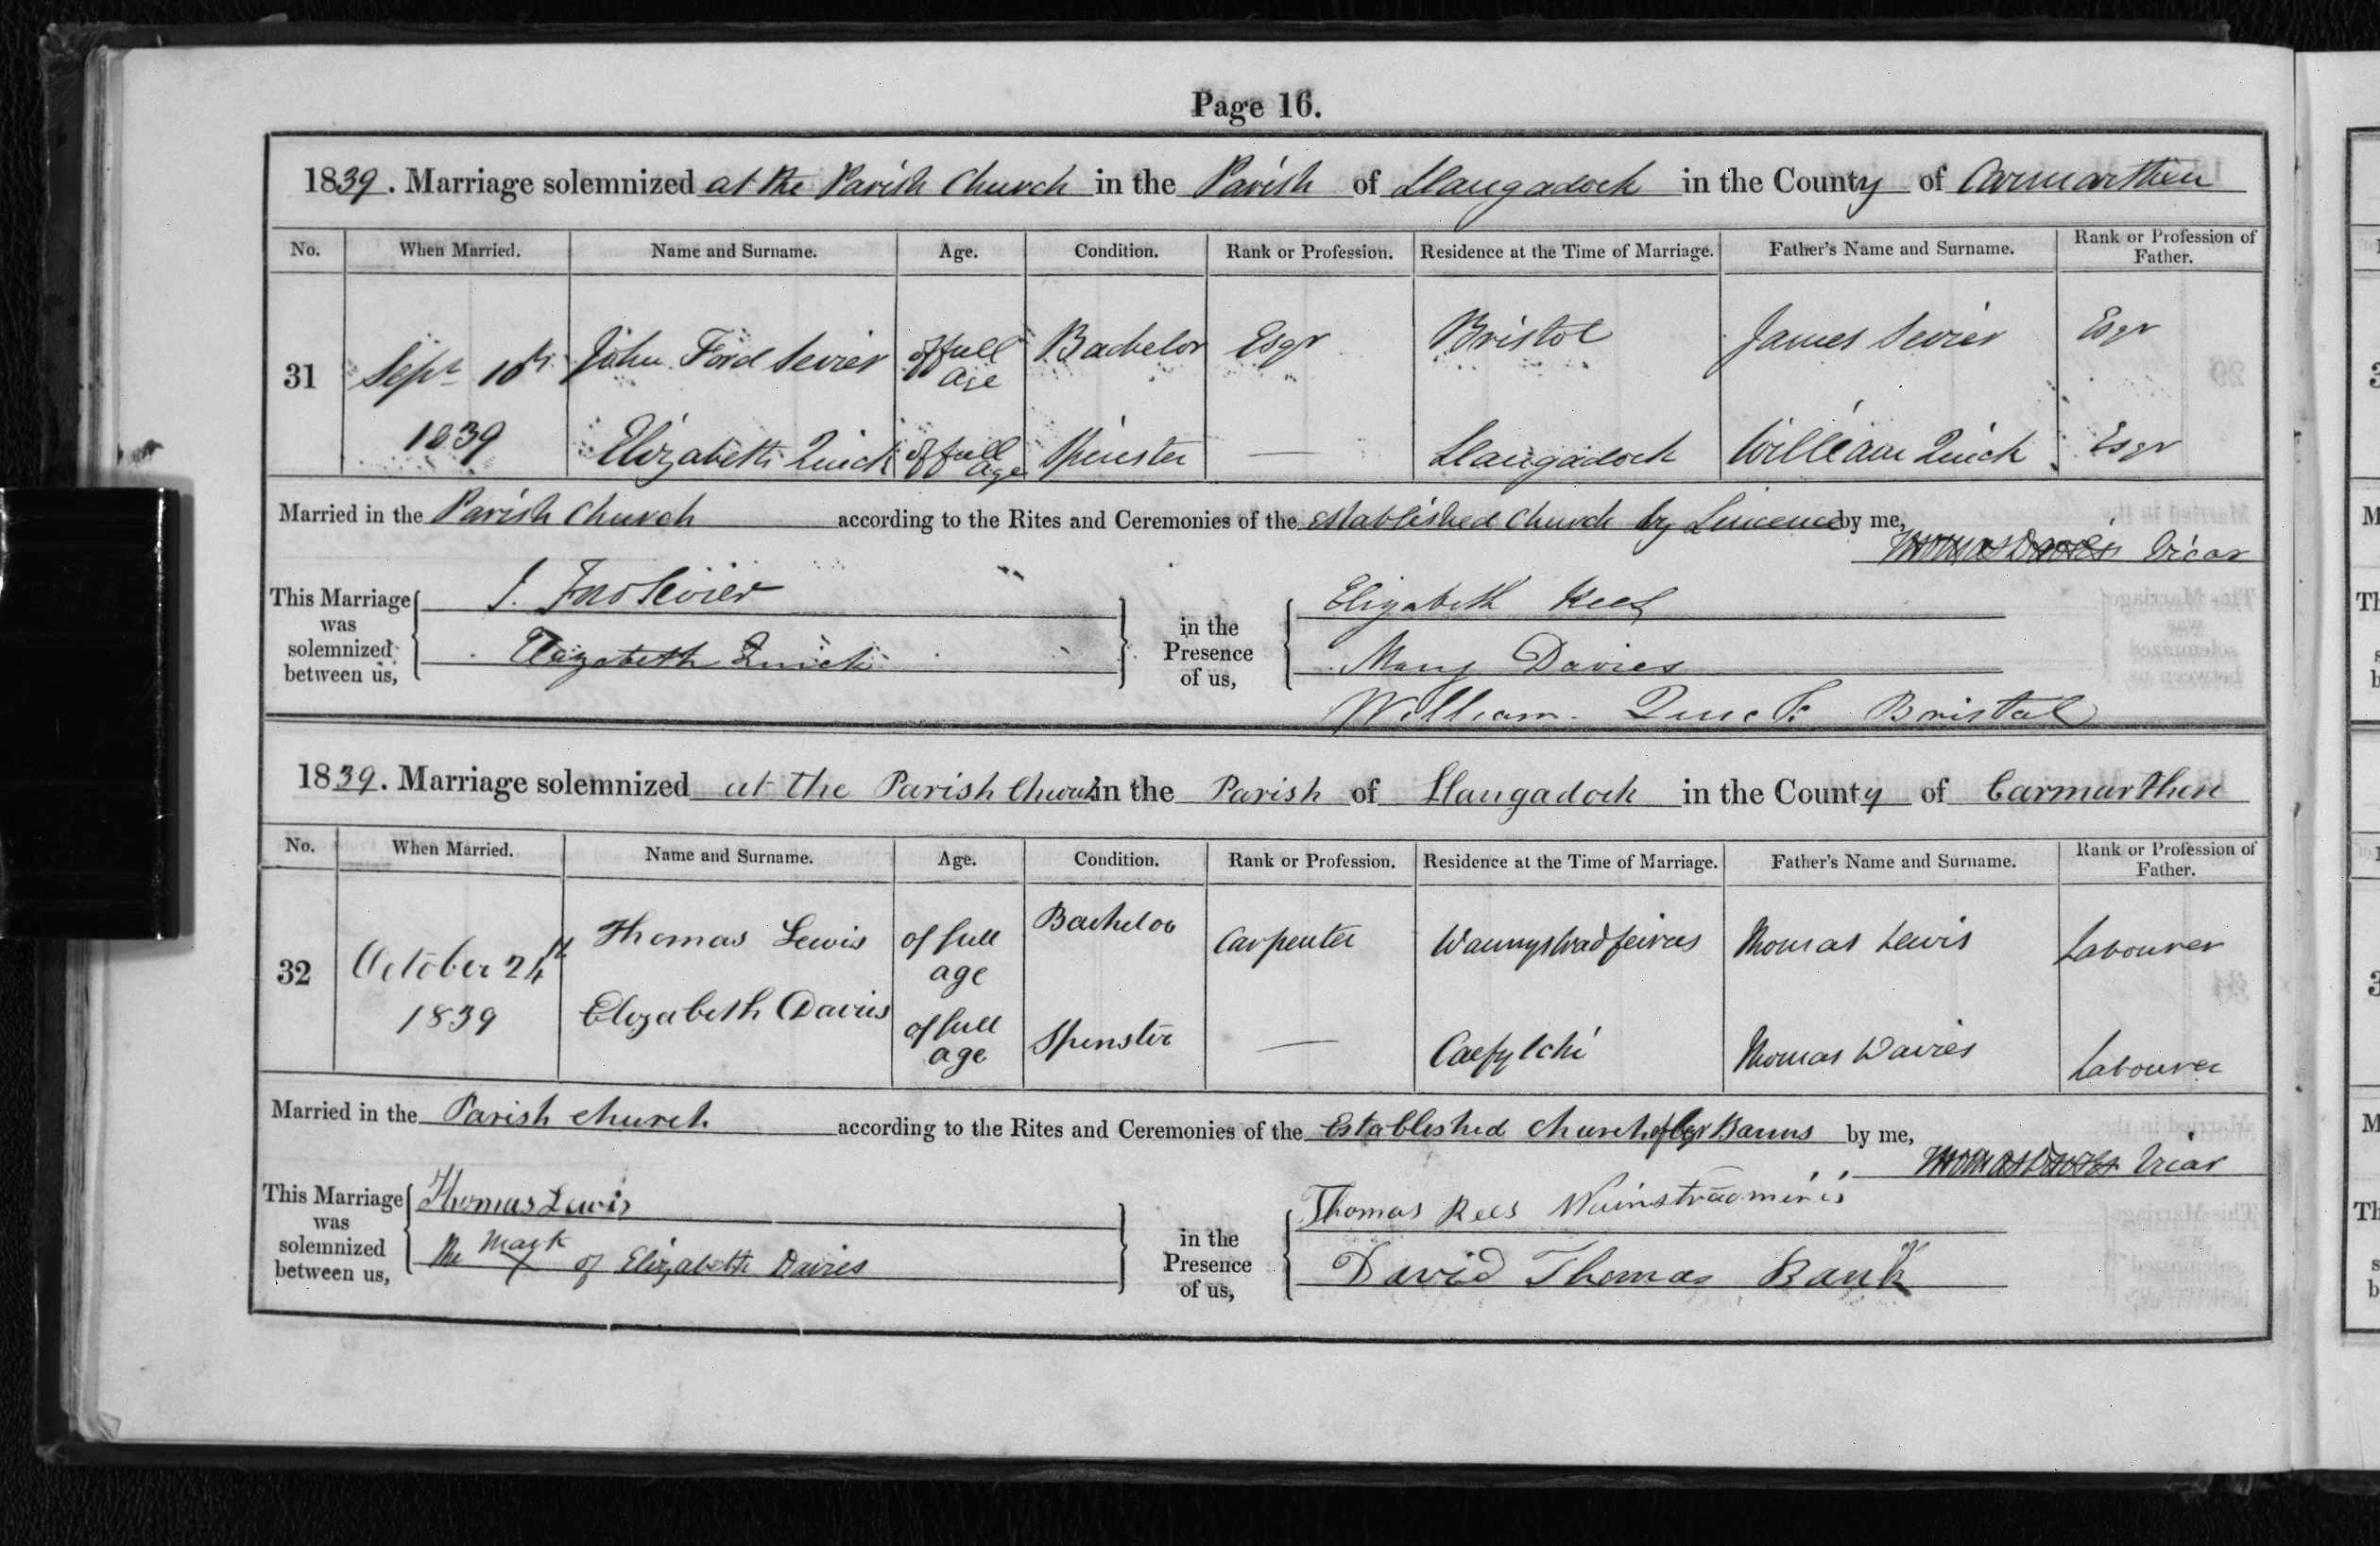 Page 16.
1839. Marriage solemnized at the Parish Church in the Parish of Llangadock in the County of Carmarthen
No. When Married. Name and Surname. Age. Condition. Rank or Profession. Residence at the Time of Marriage. Father's Name and Surname. Rank or Profession of Father.
31 Sept 10th John Ford Sevier of full age Bachelor Esqr Bristol James Sevier Esqr
1839 Elizabeth Quick of full age Spinster — Llangadock William Quick Esqr
Married in the Parish Church according to the Rites and Ceremonies of the Established Church by by me,
Thomas Davies Vicar
This Marriage was solemnized between us, Sevier
Elizabeth Quick
in the Presence of us, Elizabeth Rees
Mary Davies
William Quick Bristol
1839. Marriage solemnized at the Parish Church in the Parish of Llangadock in the County of Carmarthen
No. When Married. Name and Surname. Age. Condition. Rank or Profession. Residence at the Time of Marriage. Father's Name and Surname. Rank or Profession of Father.
32 October 24th Thomas Lewis of full age Bachelor Carpenter Thomas Lewis Labourer
1839 Elizabeth Davies of full age Spinster — Caefylchi Thomas Davies Labourer
Married in the Parish church according to the Rites and Ceremonies of the Established Church by Banns by me,
Thomas Davies Vicar
This Marriage was solemnized between us, Thomas Lewis
The Mark X of Elizabeth Davies
in the Presence of us, Thomas Rees
David Thomas Bank